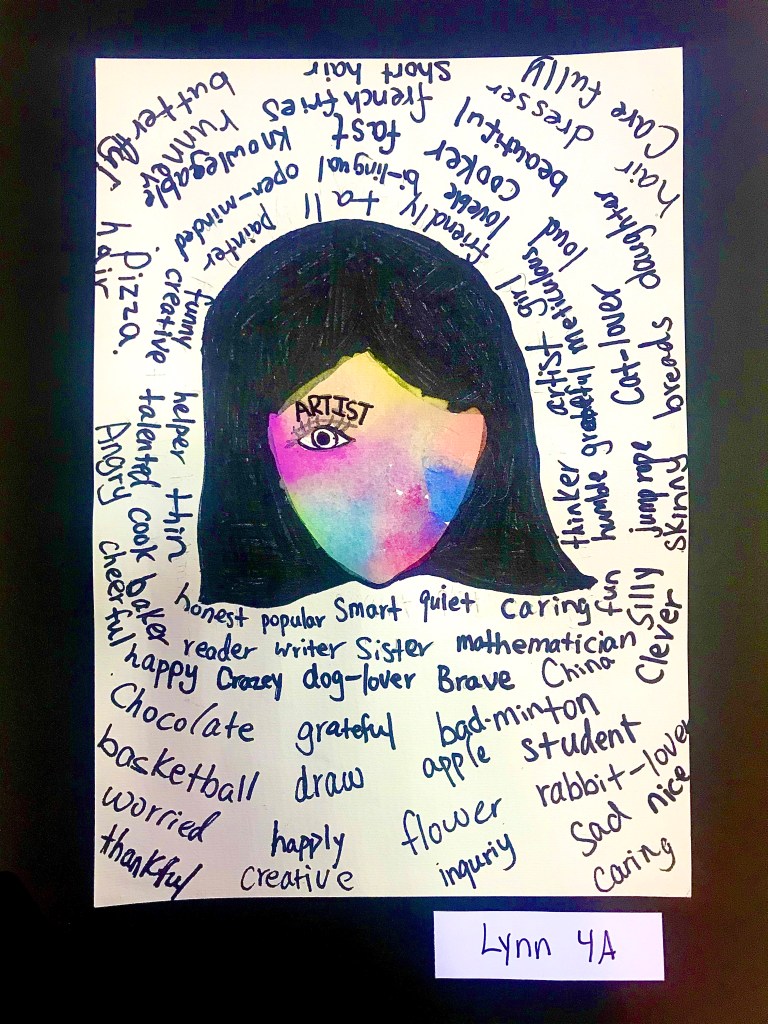 short hair
french fries
fast
bi-lingual
tall
butterfly
runner
knowlegable
open-minded
painter
Care fully
hair dresser
beautiful
cooker
loveble
friendly
daughter
loud
meticulous
girl
artist
hair
Pizza.
funny
creative
helper
talented
thin
Angry
cook
baker
cheerful
breads
Cat-lover
grateful
humble
thinker
jump rope
skinny
ARTIST
honest popular Smart quiet caring fun
Silly
Clever
reader writer Sister mathematician
happy Crazey dog-lover Brave China
Chocolate grateful bad-minton
basketball draw apple student
worried happly flower rabbit-lover
thankful creative inquriy sad nice
caring
Lynn 4A